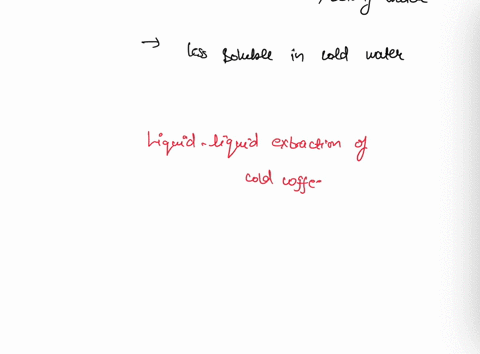 → less soluble in cold water
Liquid-liquid extraction of
cold coffe